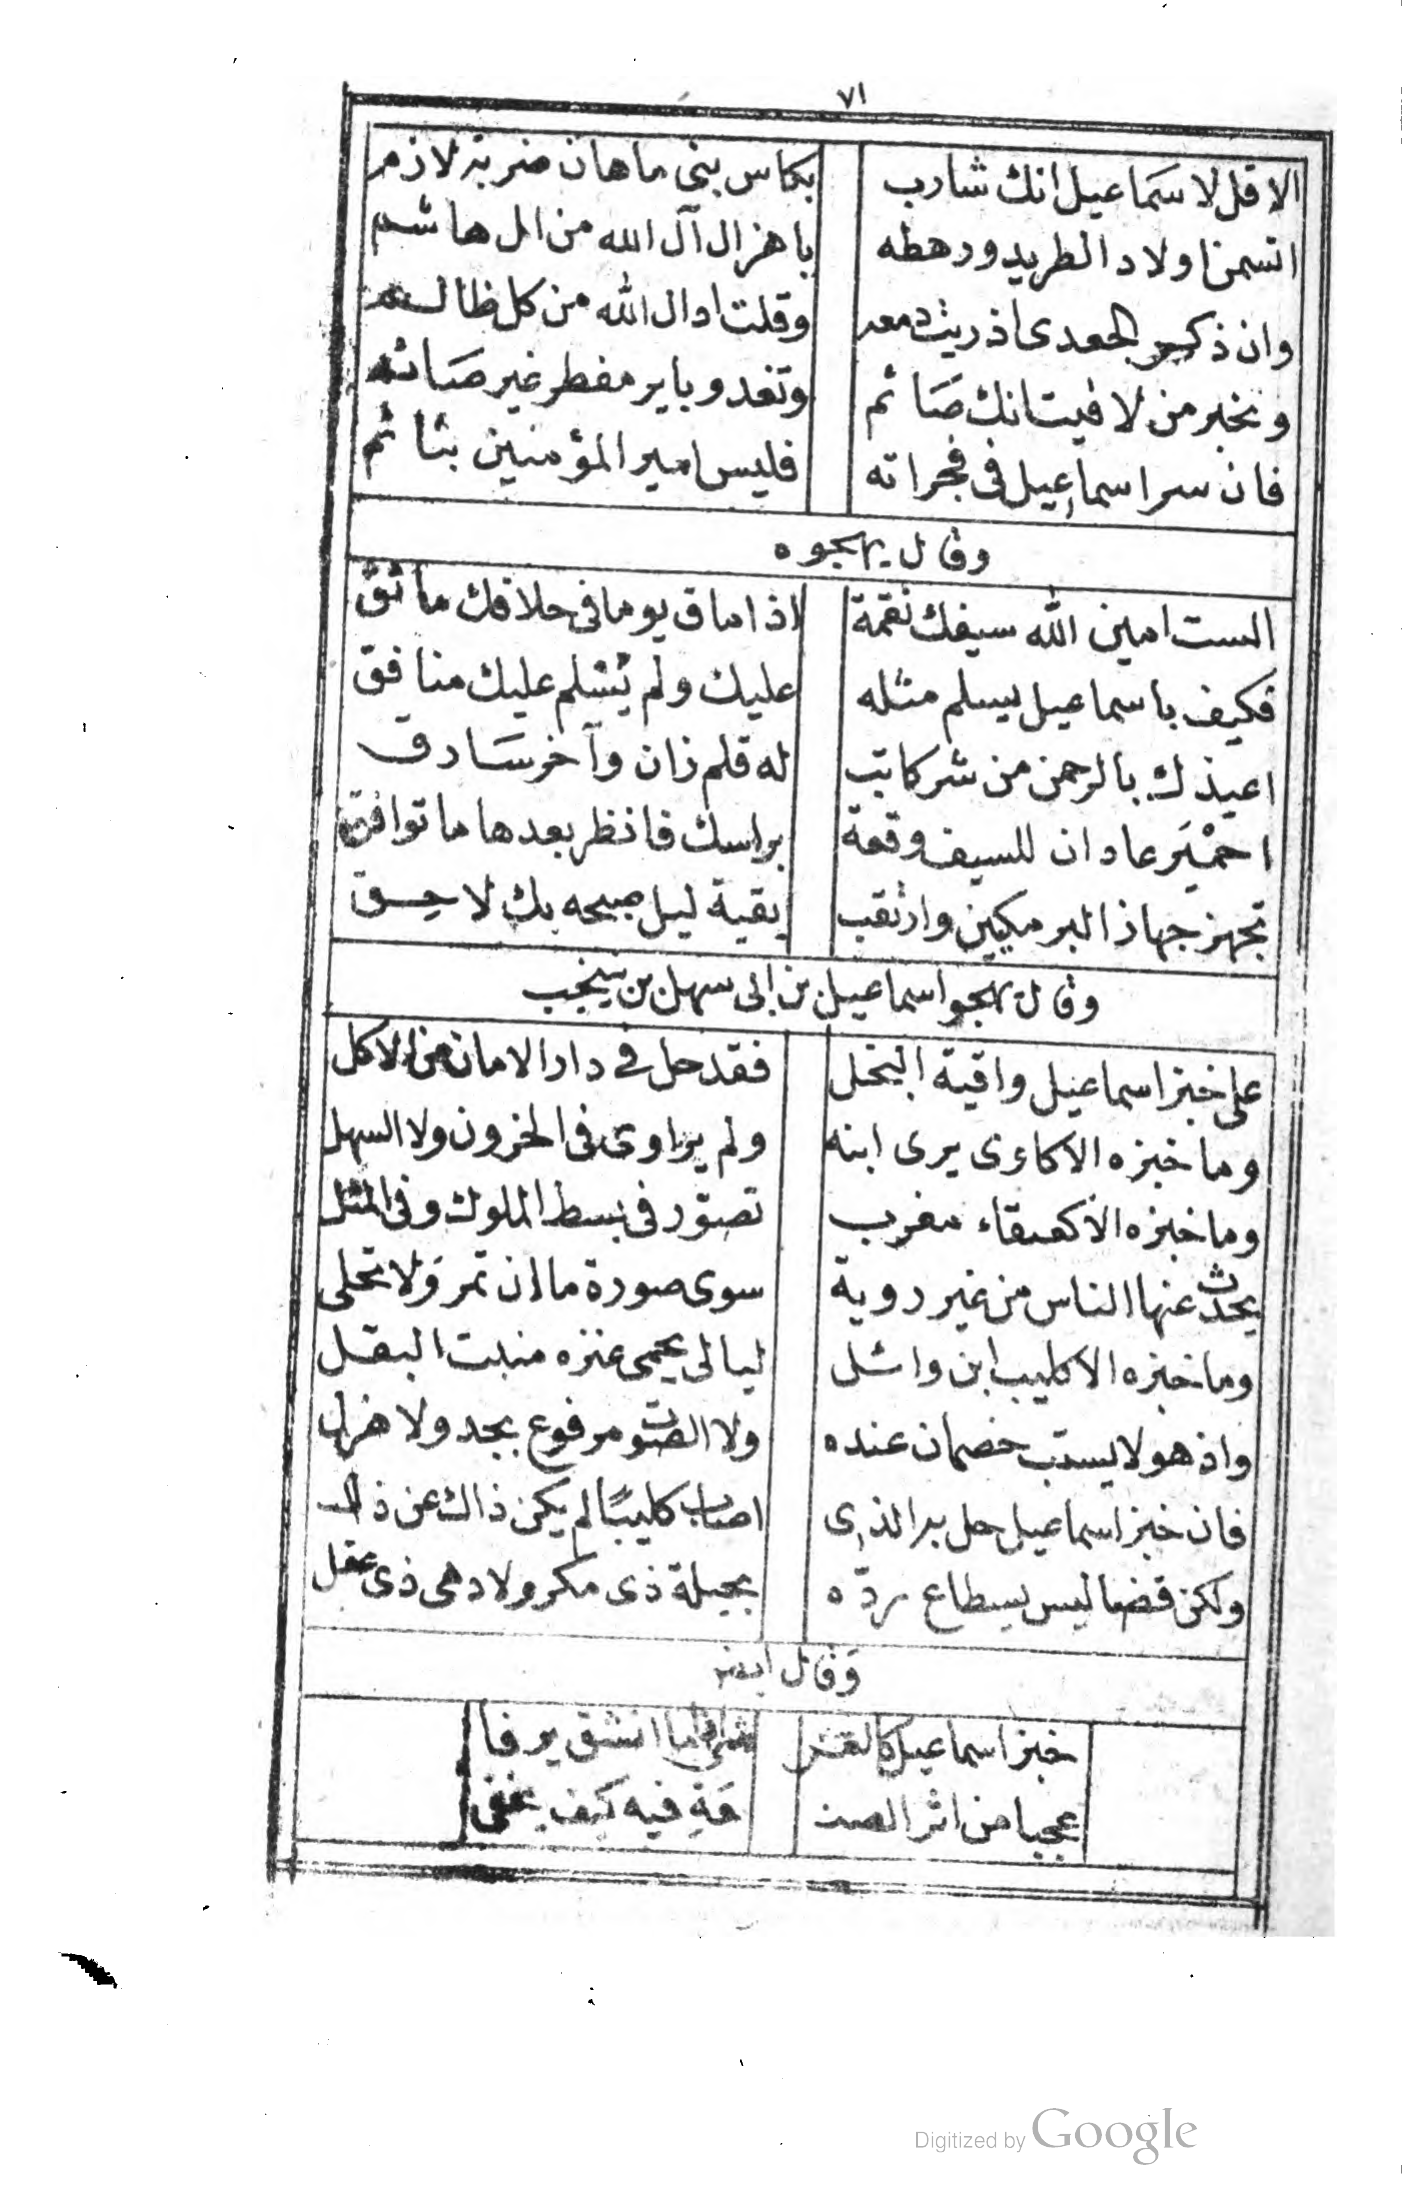 ٧١
الا قل لاسَماعيل انك شارب بكاس بنى ماهان ضربة لازم
اتسمن اولاد الطريد ورهطه باهزال آل الله من ال هاشم
وان ذكر الجعدى اذريت دمعه وقلت ادال الله من كل ظالم
وتخبر من لاقيت انك صَائم وتغدو باير مفطر غير صَائم
فان سر اسماعيل فى فجراته فليس امير المؤمنين بنائم
وقال يهجوه
الست امين الله سيفك نقمة اذا ماق يوما فى خلافك مائق
فكيف باسماعيل يسلم مثله عليك ولم يَسْلم عليك منافق
اعيذك بالرحمن من شر كاتب له قلم زان وآخر سَارق
احَمْيَر عاد ان للسيف وقعة براسك فانظر بعدها ما توافق
تجهز جهاز البرمكيين وارتقب بقية ليل صبحه بك لاحق
وقال يهجو اسماعيل بن ابى سهل بن
على خبز اسماعيل واقية البخل فقد حل فى دار الامان من الاكل
وما خبزه الا كاوى يرى ابنه ولم ير اوى فى الحزون ولا السهل
وما خبزه الا كعنقاء مغرب تصوّر فى بسط الملوك وفى المثل
يحدّث عنها الناس من غير روية سوى صورة ما ان تمر وَلا تحلى
وما خبزه الا كليب ابن وائل ليالى يحمى عزه منبت البقل
واذ هو لا يستب خصمان عنده ولا الصوت مرفوع بجد ولا هزل
فان خبز اسماعيل حل به الذى اصاب كليبًا لم يكن ذاك عن ذل
ولكن قضا ليس يسطاع ردّه بحيلة ذى مكر ولا دهى ذى عقل
وَقال ايضا
خبز اسماعيل كالوشى اذا ما انشق يرفا
عجبا من اثر الصنـ ـعَةِ فيه كيف يخفى
Digitized by Google